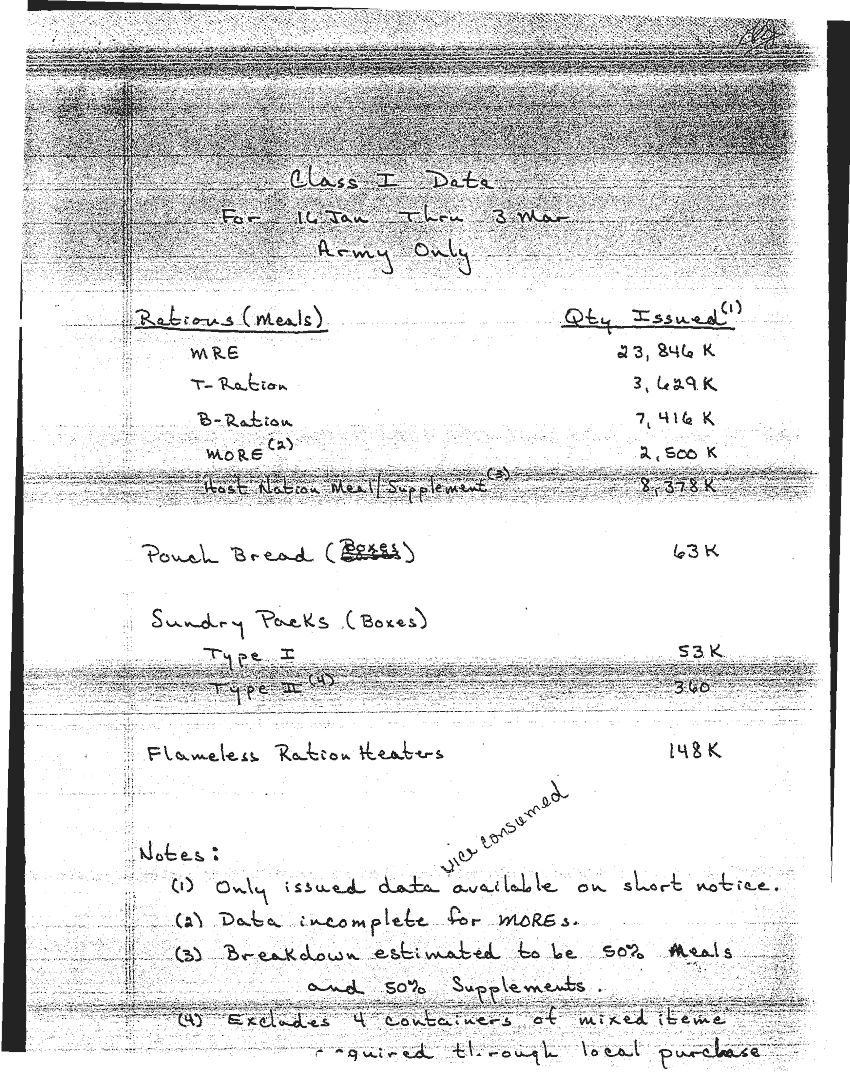 Class I Data
For 16 Jan Thru 3 Mar
Army Only
Rations (Meals) Qty Issued(1)
MRE 23,846 K
T-Ration 3,629 K
B-Ration 7,416 K
MORE(2) 2,500 K
Host Nation Meal/Supplement(3) 8,378 K
Pouch Bread (Boxes) 63 K
Sundry Packs (Boxes)
Type I 53 K
Type II(4) 360
Flameless Ration Heaters 148 K
vice consumed
Notes:
(1) Only issued data available on short notice.
(2) Data incomplete for MOREs.
(3) Breakdown estimated to be 50% Meals
and 50% Supplements.
(4) Excludes 4 containers of mixed items
through local purchase